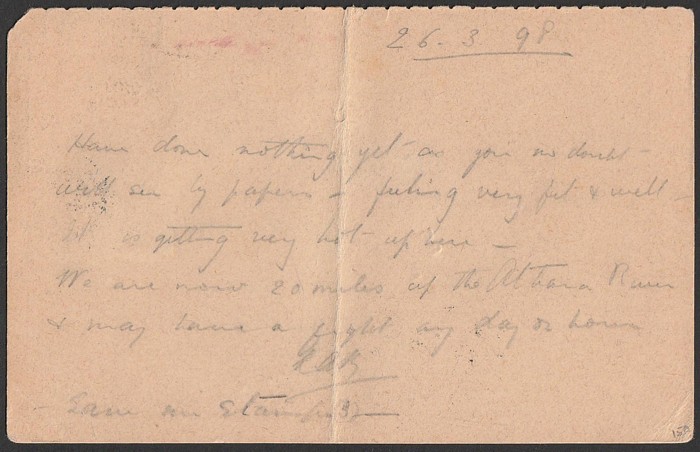 26.3 98
Have done nothing yet as you no doubt
will see by papers – feeling very fit & well –
It is getting very hot up here –
We are now 20 miles up the Atbara River
& may have a fight any day or hour
Save me stamps –